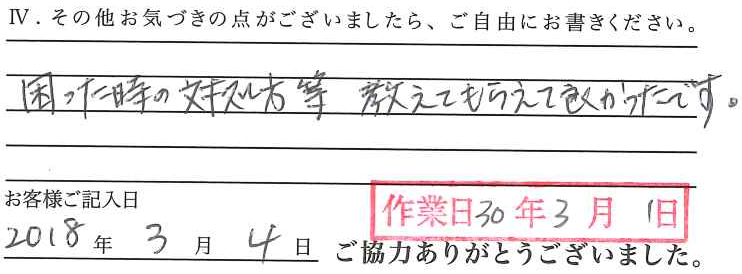 Ⅳ．その他お気づきの点がございましたら、ご自由にお書きください。
困った時の対処方等 教えてもらえて良かったです。
お客様ご記入日
作業日30年3月1日
2018年3月4日 ご協力ありがとうございました。